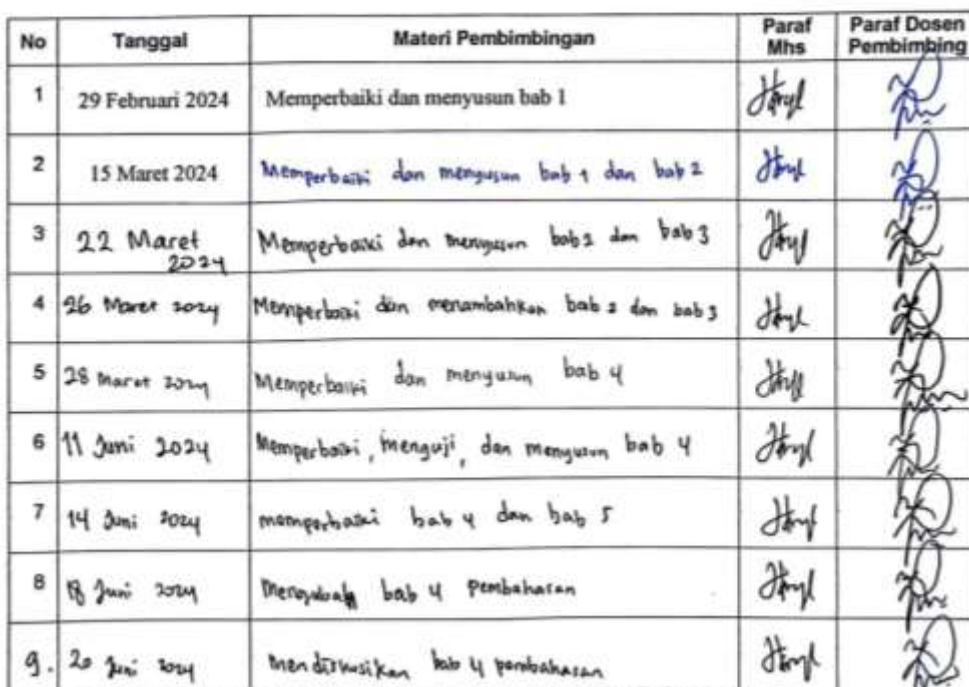 No Tanggal Materi Pembimbingan Paraf Mhs Paraf Dosen Pembimbing
1 29 Februari 2024 Memperbaiki dan menyusun bab 1
2 15 Maret 2024 Memperbaiki dan menyusun bab 1 dan bab 2
3 22 Maret 2024 Memperbaiki dan menyusun bab 2 dan bab 3
4 26 Maret 2024 Memperbaiki dan menambahkan bab 2 dan bab 3
5 28 Maret 2024 Memperbaiki dan menyusun bab 4
6 11 Juni 2024 Memperbaiki, menguji, dan menyusun bab 4
7 14 Juni 2024 memperbaiki bab 4 dan bab 5
8 18 Juni 2024 Mengubah bab 4 pembahasan
9. 20 Juni 2024 Mendiskusikan bab 4 pembahasan